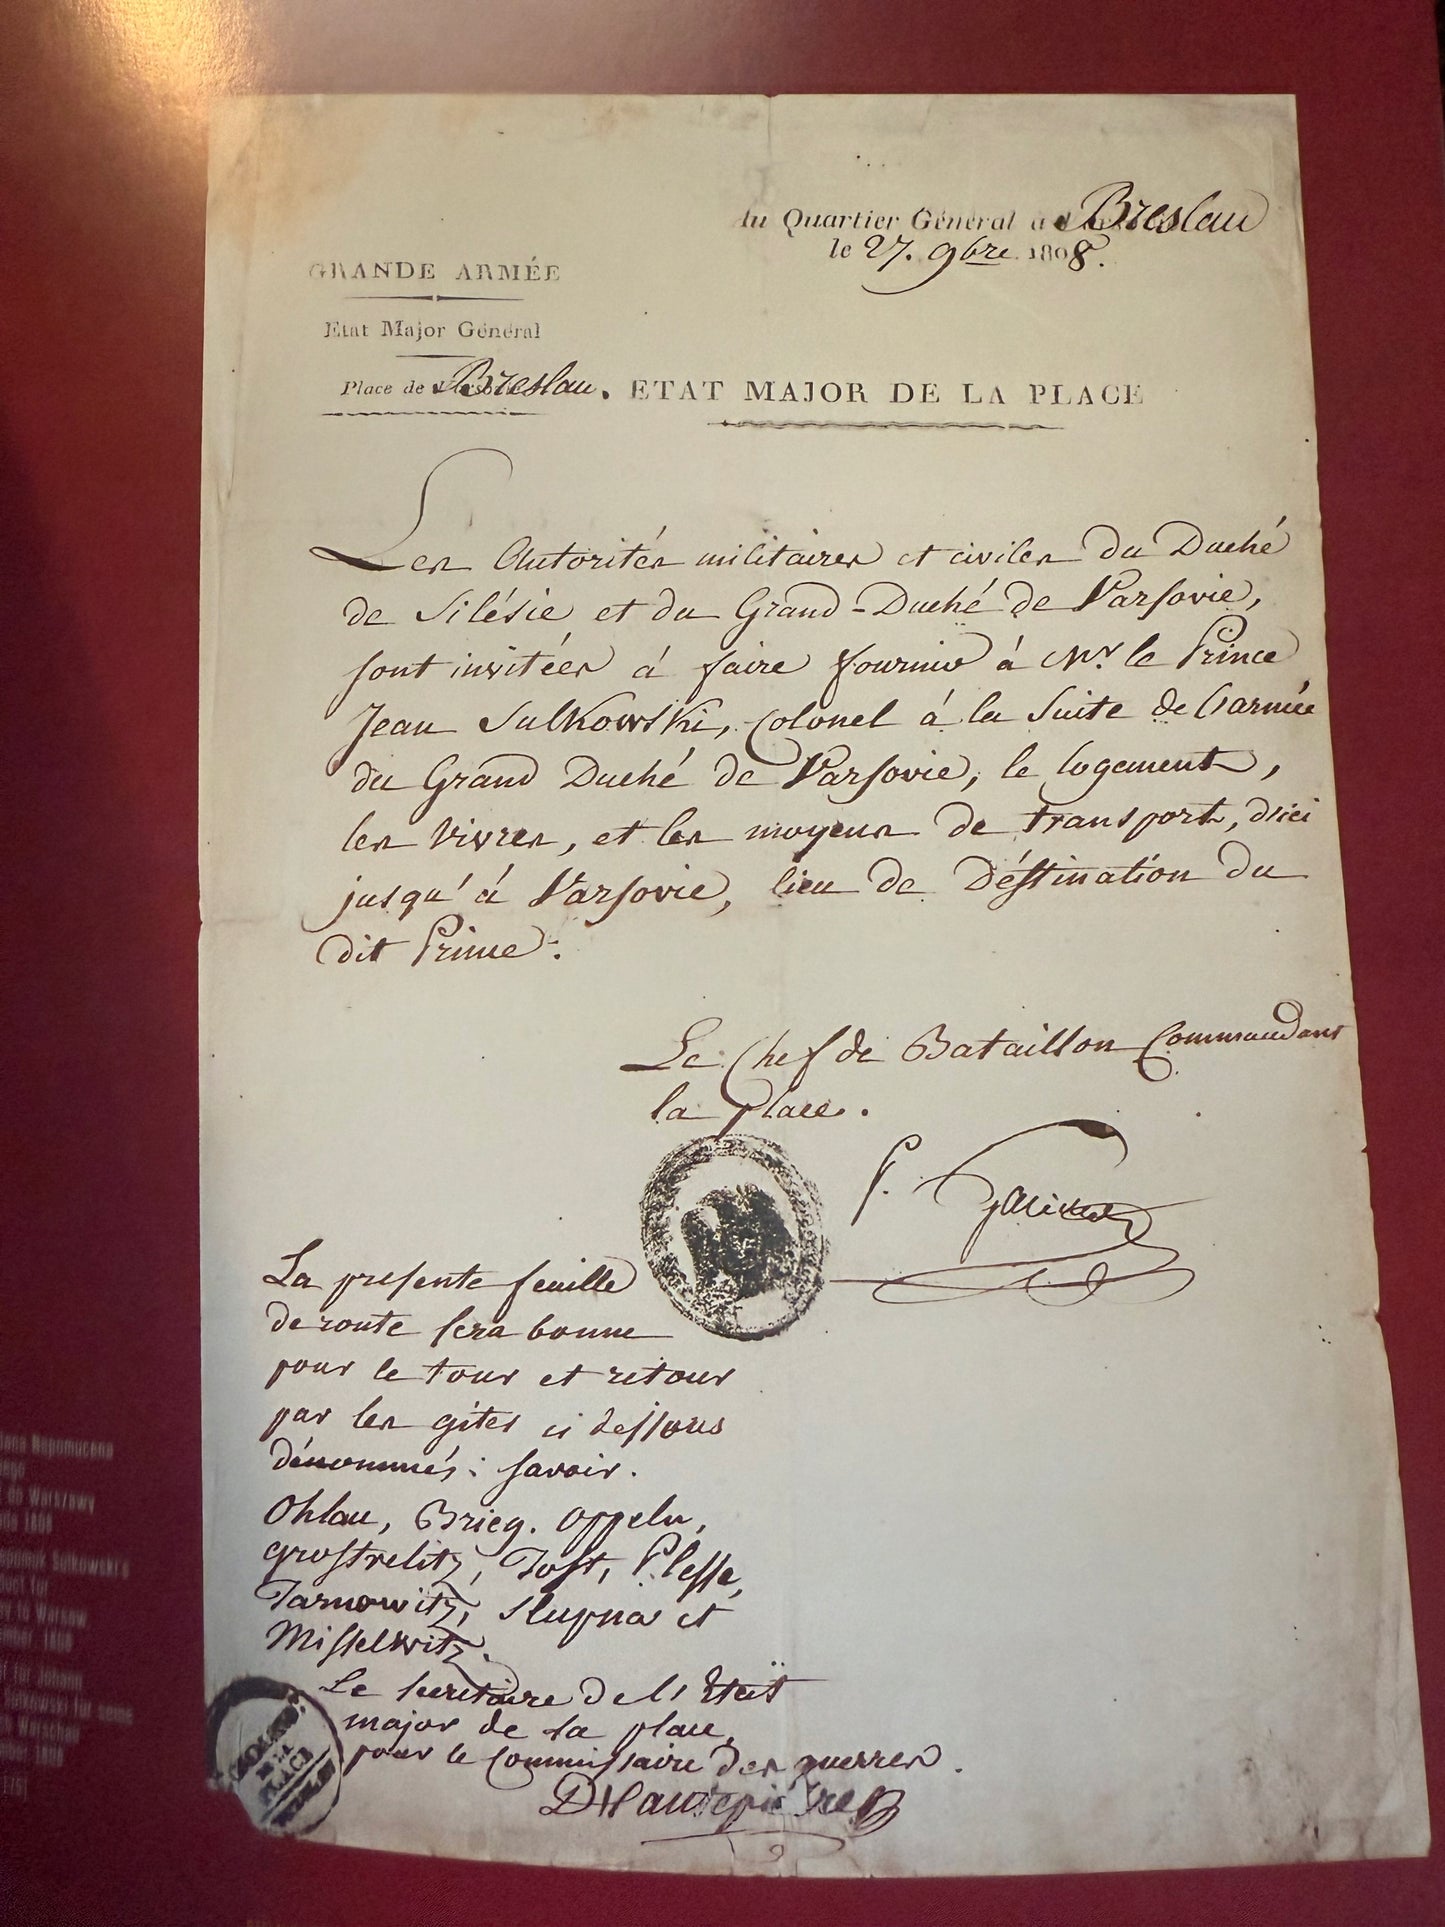 Au Quartier Général à Breslau
le 27. 9bre 1808.
GRANDE ARMÉE
Etat Major Général
Place de Breslau.
ETAT MAJOR DE LA PLACE
Les Autorités militaires et civiles du Duché
de Silésie et du Grand-Duché de Varsovie,
sont invitées à faire fournir à Mr. le Prince
Jean Sulkowski, Colonel à la Suite de l'armée
du Grand Duché de Varsovie, le logement,
les vivres, et les moyens de transport, d'ici
jusqu'à Varsovie, lieu de Déstination du
dit Prince.
Le Chef de Bataillon Commandant
la place.
La presente feuille
de route sera bonne
pour le tour et retour
par les gites ci dessous
dénommés: savoir.
Ohlau, Brieg. Oppeln,
Grosstrelitz, Tost, Plesse,
Tarnowitz, Slupna et
Misselwitz.
Le secretaire de l'Etat
major de la place,
pour le Commissaire des guerres.
DE LA
PLACE
Jana Nepomucena
do Warszawy
1808
Nepomuk Sulkowski's
duct for
ey to Warsaw
ember, 1808
für Johann
Sulkowski für seine
ch Warschau
mber 1808